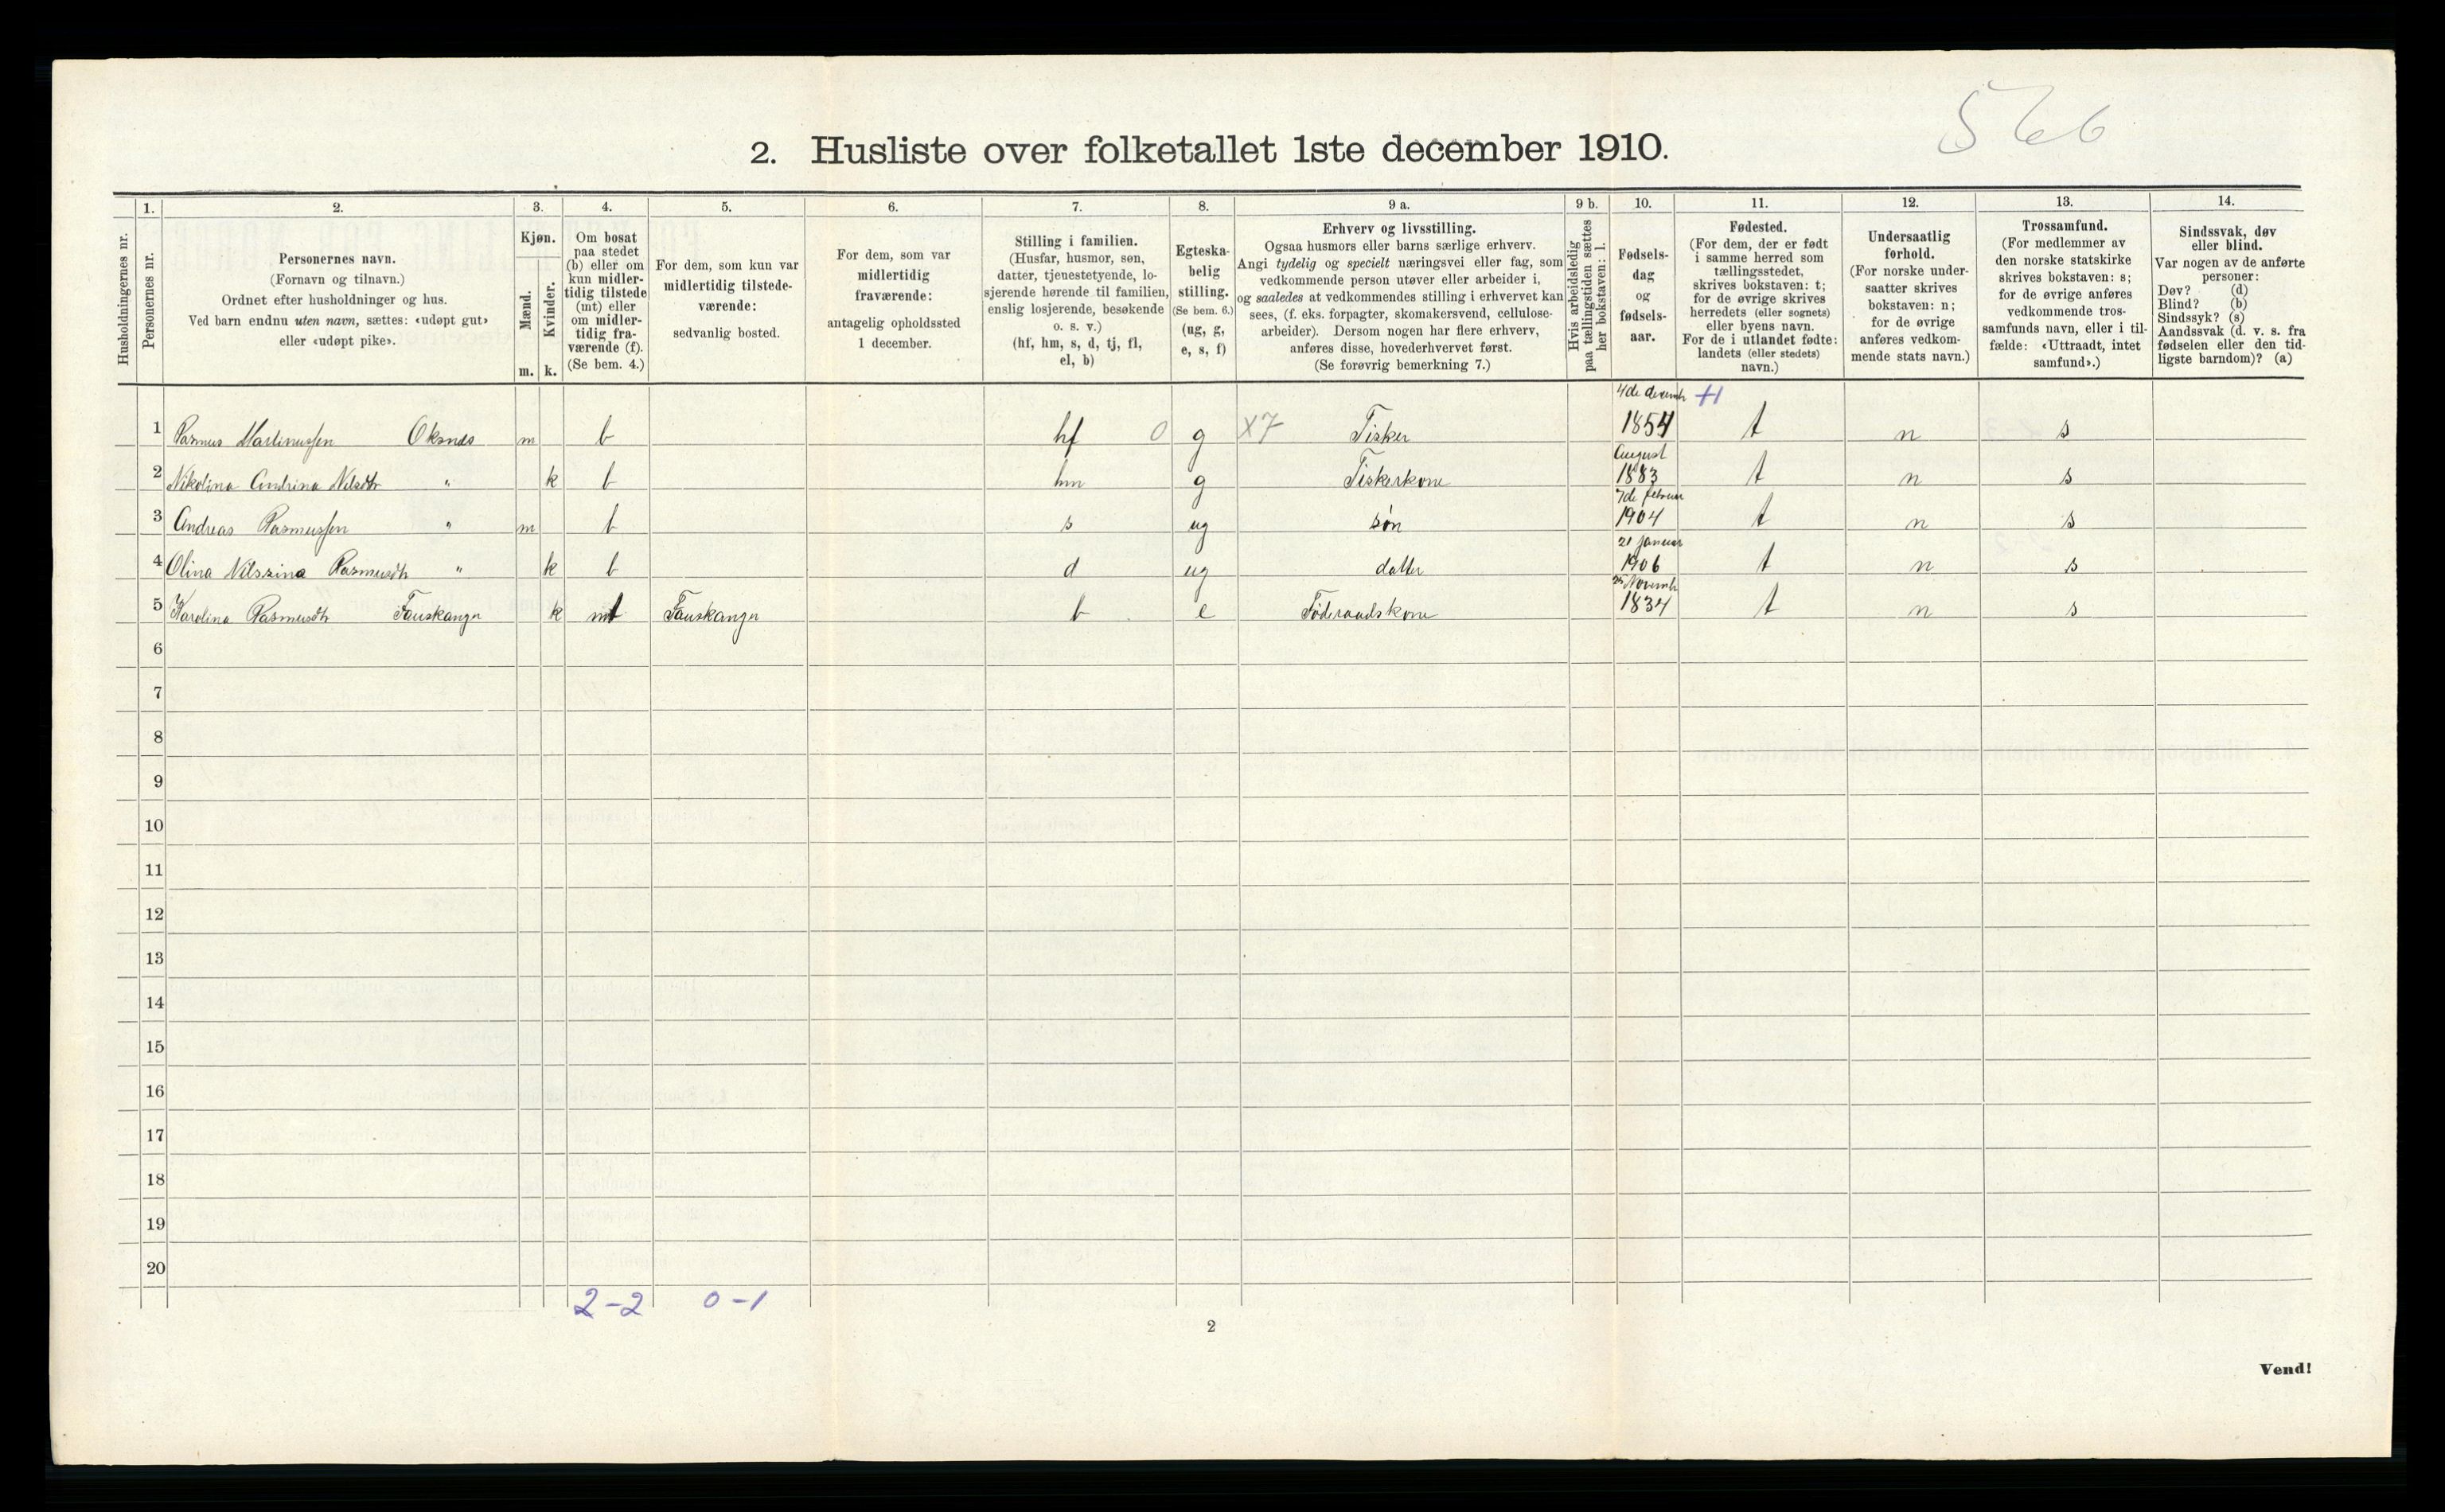 566
2. Husliste over folketallet 1ste december 1910.
Husholdningernes nr.
1.
Personernes nr.
2.
Personernes navn.
(Fornavn og tilnavn.)
Ordnet efter husholdninger og hus.
Ved barn endnu uten navn, sættes: «udøpt gut»
eller «udøpt pike».
3.
Kjøn.
Mænd.
Kvinder.
m. k.
4.
Om bosat
paa stedet
(b) eller om
kun midler-
tidig tilstede
(mt) eller
om midler-
tidig fra-
værende (f).
(Se bem. 4.)
5.
For dem, som kun var
midlertidig tilstede-
værende:
sedvanlig bosted.
6.
For dem, som var
midlertidig
fraværende:
antagelig opholdssted
1 december.
7.
Stilling i familien.
(Husfar, husmor, søn,
datter, tjenestetyende, lo-
sjerende hørende til familien,
enslig losjerende, besøkende
o. s. v.)
(hf, hm, s, d, tj, fl,
el, b)
8.
Egteska-
belig
stilling.
(Se bem. 6.)
(ug, g,
e, s, f)
9 a.
Erhverv og livsstilling.
Ogsaa husmors eller barns særlige erhverv.
Angi tydelig og specielt næringsvei eller fag, som
vedkommende person utøver eller arbeider i,
og saaledes at vedkommendes stilling i erhvervet kan
sees, (f. eks. forpagter, skomakersvend, cellulose-
arbeider). Dersom nogen har flere erhverv,
anføres disse, hovederhvervet først.
(Se forøvrig bemerkning 7.)
9 b.
Hvis arbeidsledig
paa tællingstiden sættes
her bokstaven: l.
10.
Fødsels-
dag
og
fødsels-
aar.
11.
Fødested.
(For dem, der er født
i samme herred som
tællingsstedet,
skrives bokstaven: t;
for de øvrige skrives
herredets (eller sognets)
eller byens navn.
For de i utlandet fødte:
landets (eller stedets)
navn.)
12.
Undersaatlig
forhold.
(For norske under-
saatter skrives
bokstaven: n;
for de øvrige
anføres vedkom-
mende stats navn.)
13.
Trossamfund.
(For medlemmer av
den norske statskirke
skrives bokstaven: s;
for de øvrige anføres
vedkommende tros-
samfunds navn, eller i til-
fælde: «Uttraadt, intet
samfund».)
14.
Sindssvak, døv
eller blind.
Var nogen av de anførte
personer:
Døv? (d)
Blind? (b)
Sindssyk? (s)
Aandssvak (d. v. s. fra
fødselen eller den tid-
ligste barndom)? (a)
1 Rasmus Martinussen Oksnes m b hf 0 g X7 Fisker 4de decemb 1854 t n s
2 Nikolina Andrina Nilsdtr " k b hm g Fiskerkone August 1883 t n s
3 Andreas Rasmussen " m b s ug søn 7de februar 1904 t n s
4 Olina Nilszina Rasmusdtr " k b d ug datter 21 januar 1906 t n s
5 Karolina Rasmusdtr Fauskanger k mt Fauskanger b e Føderaadskone 25 Novemb 1834 t n s
6
7
8
9
10
11
12
13
14
15
16
17
18
19
20
2-2 0-1
2
Vend!